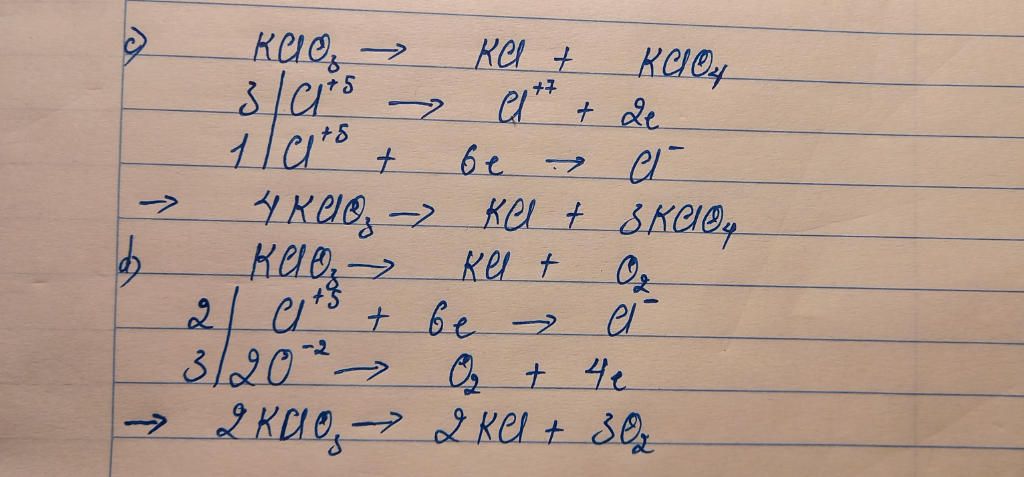 c) KClO₃ → KCl + KClO₄
3 | Cl⁺⁵ → Cl⁺⁷ + 2e
1 | Cl⁺⁵ + 6e → Cl⁻
→ 4KClO₃ → KCl + 3KClO₄
d) KClO₃ → KCl + O₂
2 | Cl⁺⁵ + 6e → Cl⁻
3 | 2O⁻² → O₂ + 4e
→ 2KClO₃ → 2KCl + 3O₂